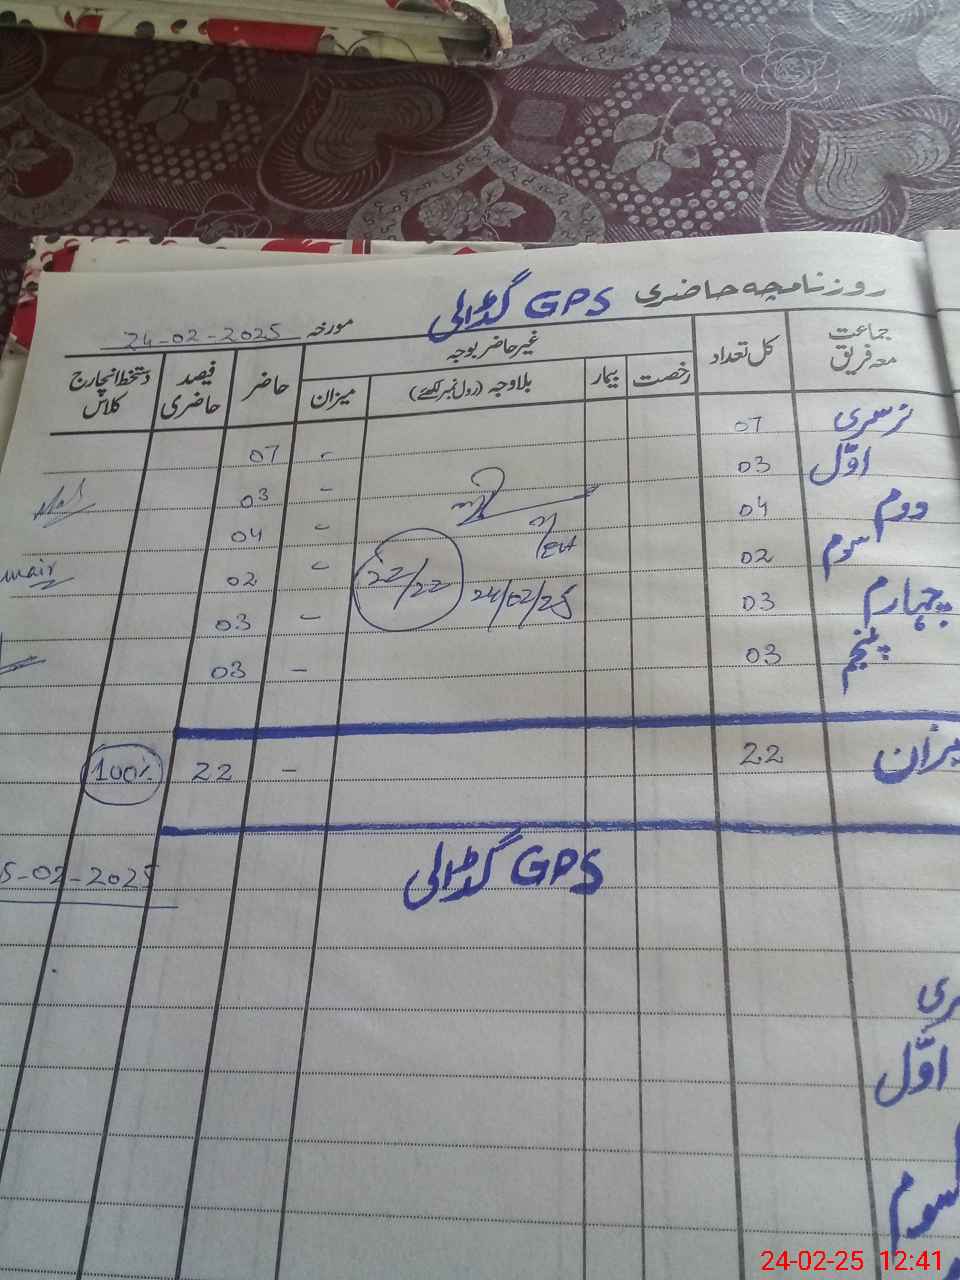 روزنامچہ حاضری GPS گڈالی
مورخہ 24-02-2025
جماعت معہ فریق کل تعداد غیر حاضر بوجہ حاضر فیصد حاضری دستخط انچارج کلاس
رخصت بیمار بلاوجہ (رول نمبر لکھئے) میزان
نرسری 07 - 07
اوّل 03 - 03
دوم 04 - 04
سوم 02 22/22 - 02
چہارم 03 24/02/25 - 03
پنجم 03 - 03
میزان 22 - 22 100%
GPS گڈالی 5-02-2025
اوّل
سوم
24-02-25 12:41